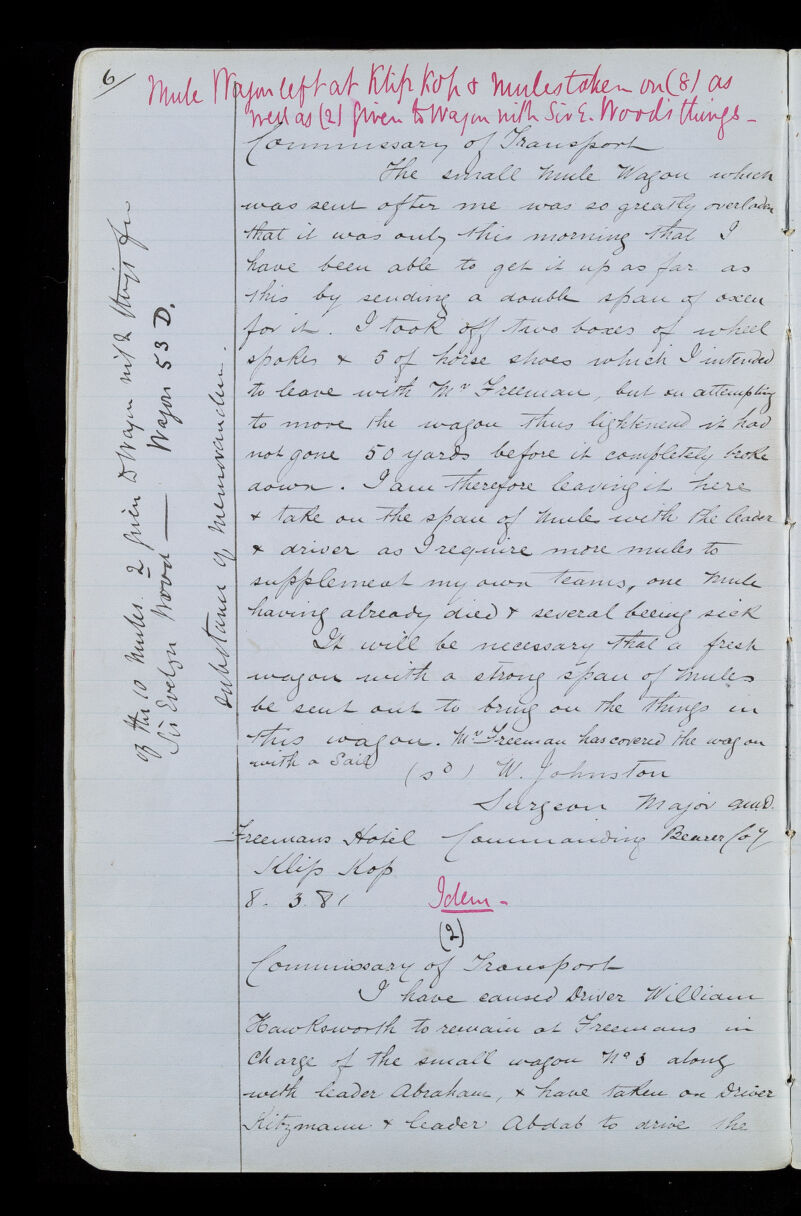 6/
Mule Wagon left at Klip Kop & mules taken on (8) as
well as (2) given to Wagon with Sir E. Wood's things -
Commissary of Transport
The small Mule Wagon which
was sent after me was so greatly overladen
that it was only this morning that I
have been able to get it up as far as
this by sending a double span of oxen
for it. I took off two boxes of wheel
spokes & 5 of horse shoes which I intended
to leave with Mr Freeman, but on attempting
to move the wagon thus lightened it had
not gone 50 yards before it completely broke
down. I am therefore leaving it here
& take on the span of mules with the leader
& driver as I require more mules to
supplement my own teams, one mule
having already died & several being sick
It will be necessary that a fresh
wagon with a strong span of mules
be sent out to bring on the things in
this wagon. Mr Freeman has covered the wagon
with a Sail
(sd) W. Johnston
Surgeon Major amd.
Freemans Hotel Commanding Bearer Coy
Klip Kop
8. 3. 81
of the 10 mules 2 given to Wagon with things for
Sir Evelyn Wood — Wagon 53 D.
substance of memorandum.
Idem -
(2)
Commissary of Transport
I have caused Driver William
Hawksworth to remain at Freemans in
charge of the small wagon No 3 along
with leader Abraham, & have taken on Driver
Kitzmann & leader Abdab to drive the